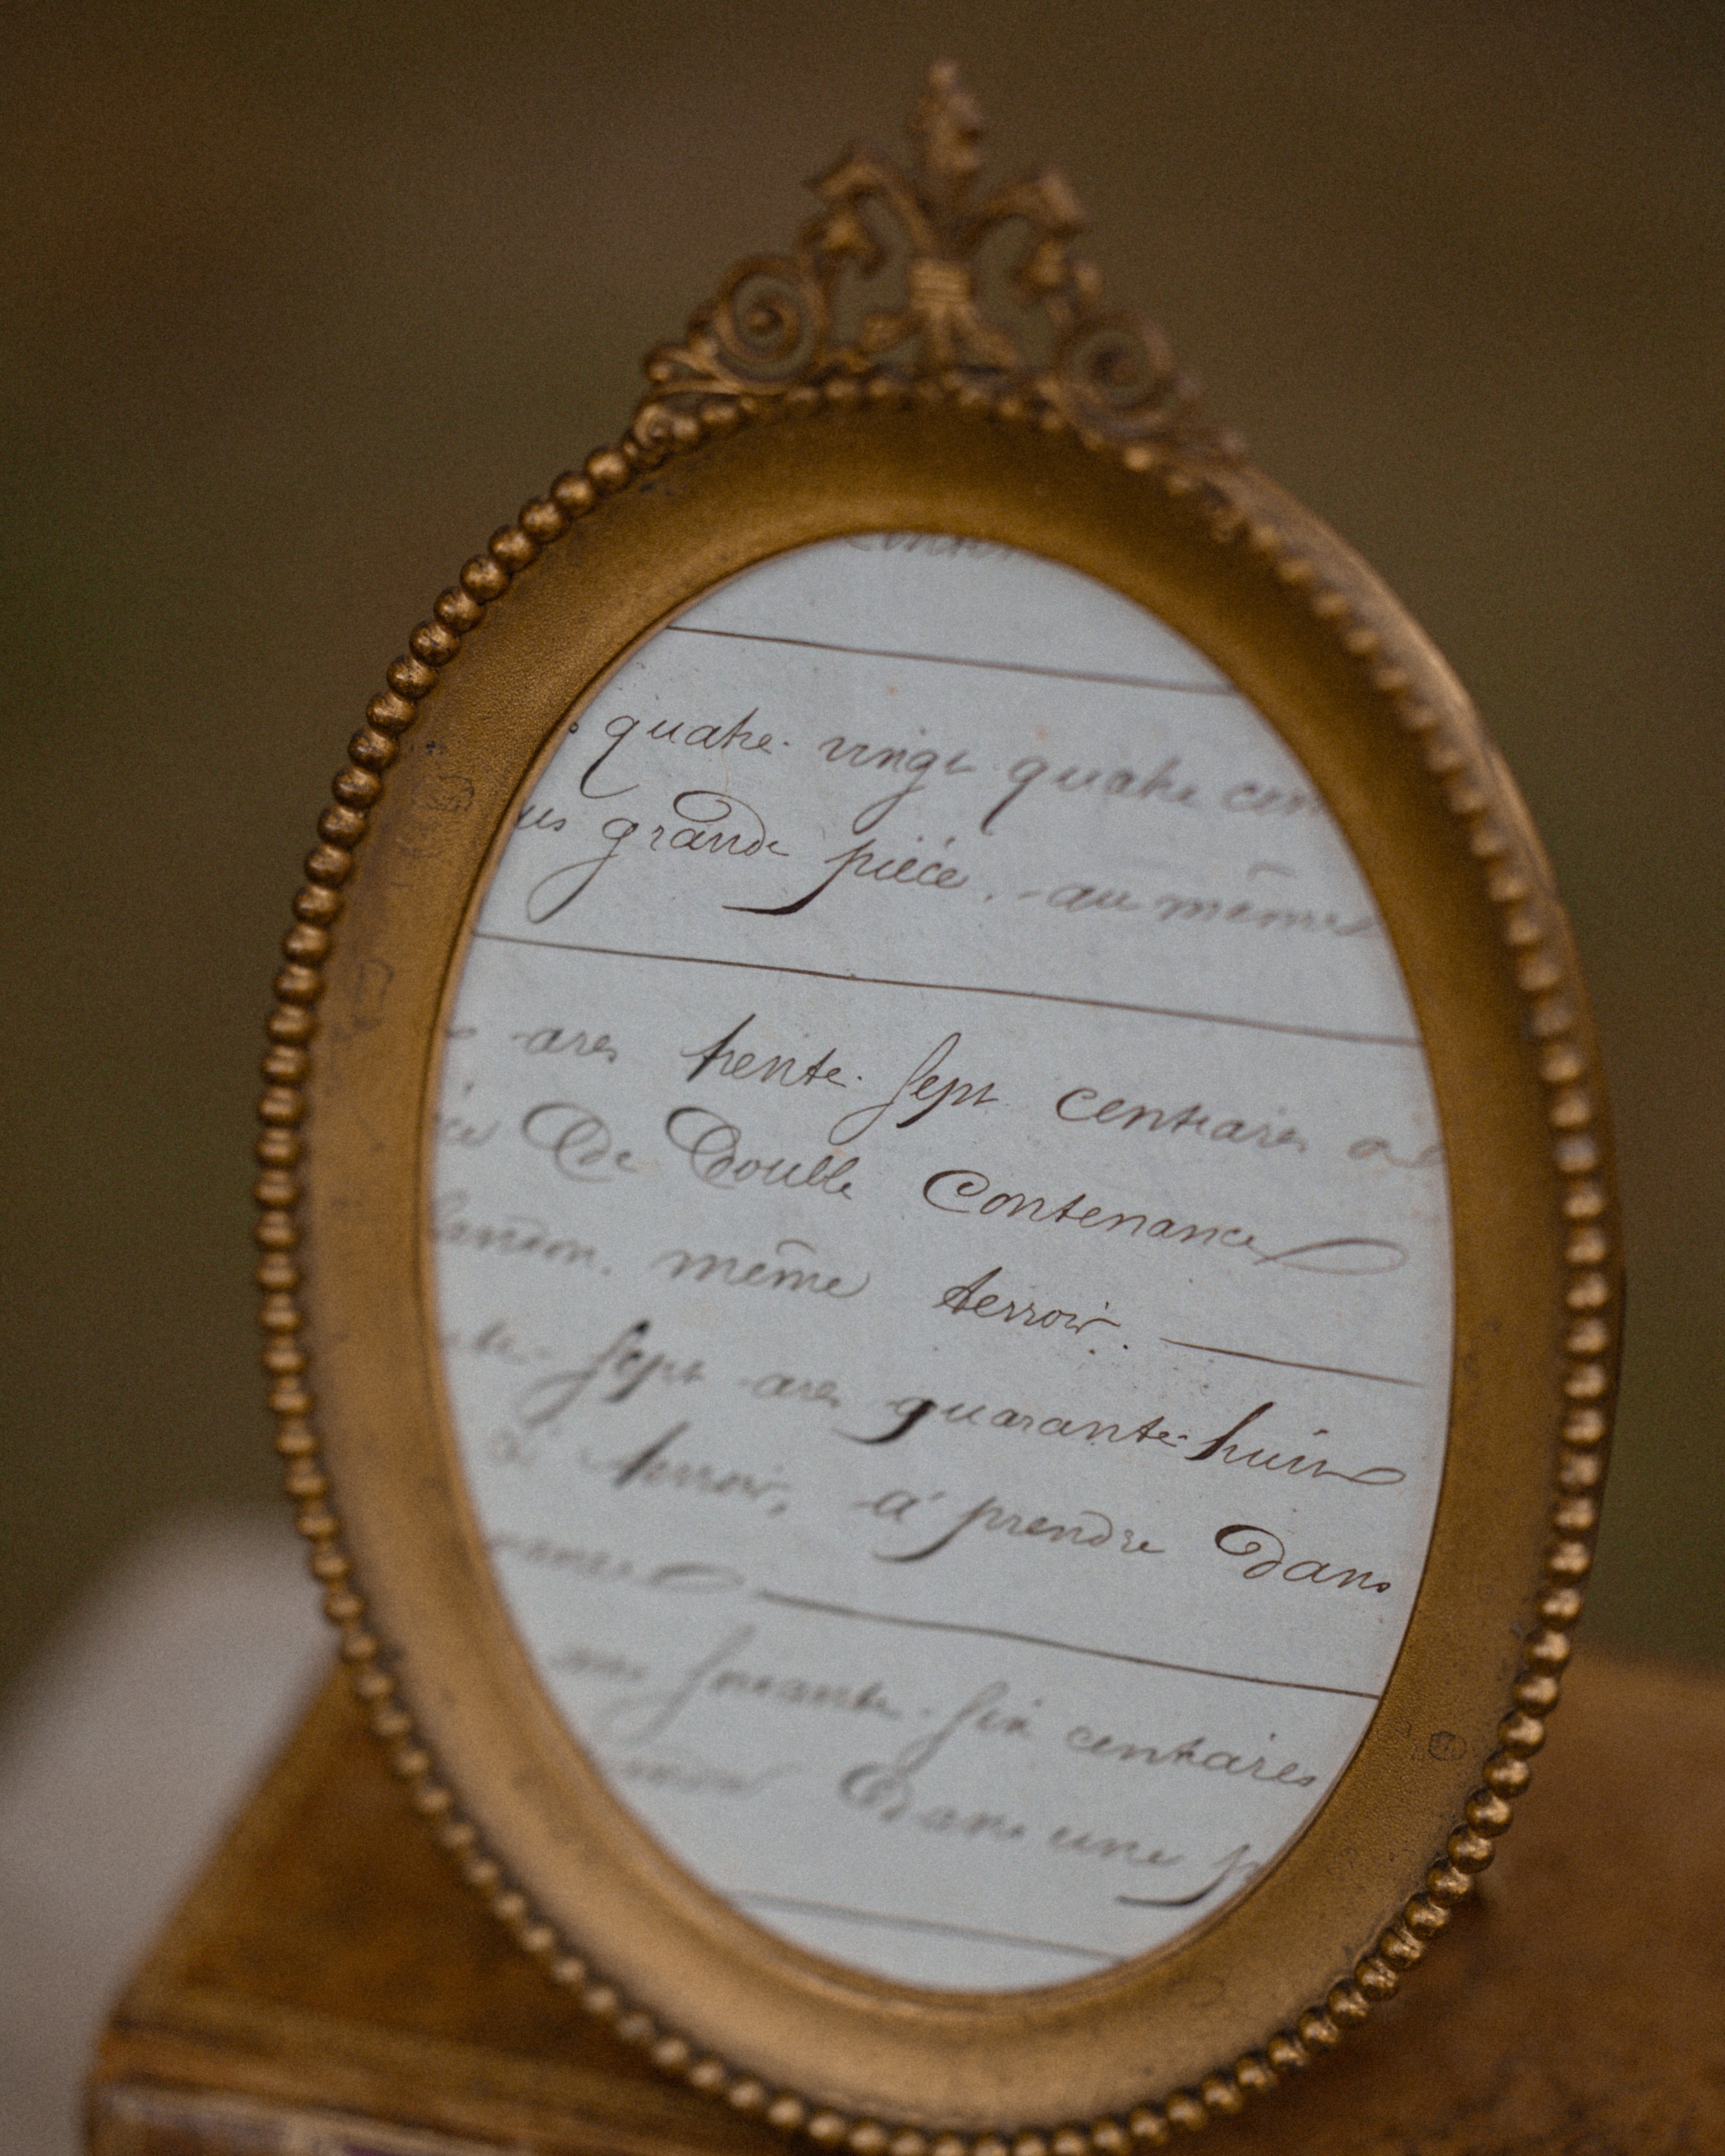 quatre-vingt quatre cen
us grande piéce, -au même
ares trente-sept centiares
De Double Contenance
même terroir.
sept ares quarante-huit
terroir, à prendre Dans
soixante-six centiares
Dans une p